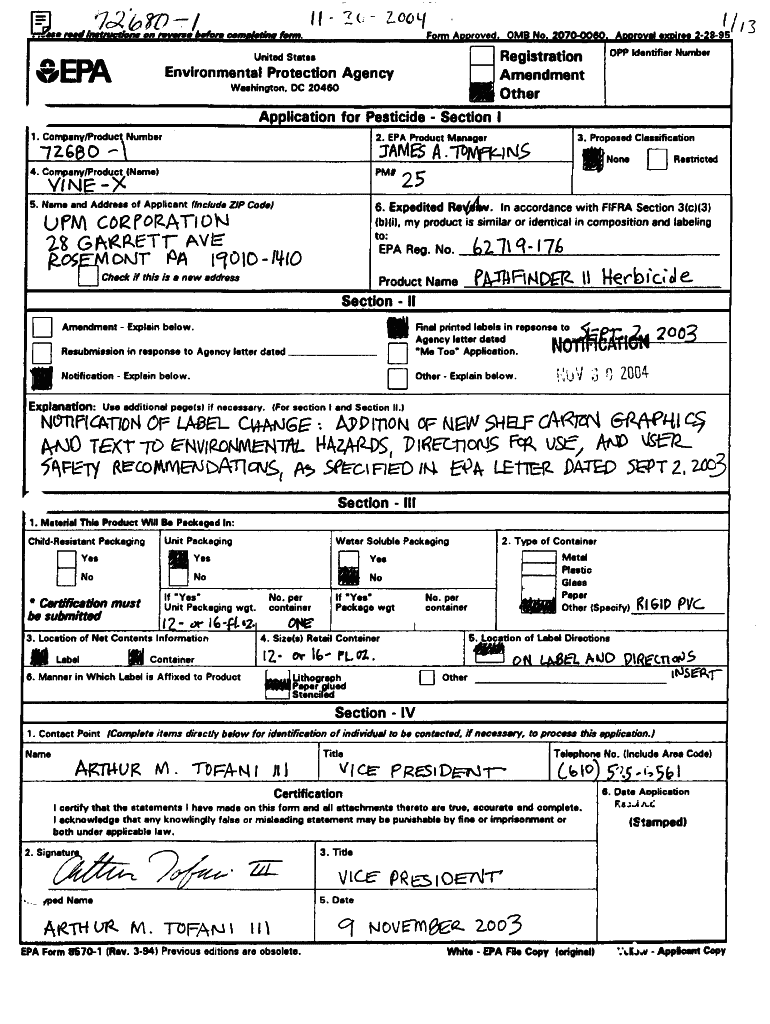 72680-1 11-30-2004 1/13
Please read instructions on reverse before completing form. Form Approved, OMB No. 2070-0060, Approval expires 2-28-95
EPA
United States
Environmental Protection Agency
Washington, DC 20460
Registration
Amendment
Other
OPP Identifier Number
Application for Pesticide - Section I
1. Company/Product Number
72680-1
2. EPA Product Manager
JAMES A. TOMPKINS
3. Proposed Classification
None Restricted
4. Company/Product (Name)
VINE-X
PM#
25
5. Name and Address of Applicant (Include ZIP Code)
UPM CORPORATION
28 GARRETT AVE
ROSEMONT PA 19010-1410
Check if this is a new address
6. Expedited Review. In accordance with FIFRA Section 3(c)(3)
(b)(i), my product is similar or identical in composition and labeling
to:
EPA Reg. No. 62719-176
Product Name PATHFINDER II Herbicide
Section - II
Amendment - Explain below.
Resubmission in response to Agency letter dated
Notification - Explain below.
Final printed labels in repsonse to
Agency letter dated SEPT 2, 2003
"Me Too" Application. NOTIFICATION
Other - Explain below. NOV 30 2004
Explanation: Use additional page(s) if necessary. (For section I and Section II.)
NOTIFICATION OF LABEL CHANGE: ADDITION OF NEW SHELF CARTON GRAPHICS
AND TEXT TO ENVIRONMENTAL HAZARDS, DIRECTIONS FOR USE, AND USER
SAFETY RECOMMENDATIONS, AS SPECIFIED IN EPA LETTER DATED SEPT 2, 2003
Section - III
1. Material This Product Will Be Packaged In:
Child-Resistant Packaging
Yes
No
* Certification must
be submitted
Unit Packaging
Yes
No
If "Yes" No. per
Unit Packaging wgt. container
12- or 16-fl oz. ONE
Water Soluble Packaging
Yes
No
If "Yes" No. per
Package wgt container
2. Type of Container
Metal
Plastic
Glass
Paper
Other (Specify) RIGID PVC
3. Location of Net Contents Information
Label Container
4. Size(s) Retail Container
12- or 16- FL OZ.
5. Location of Label Directions
ON LABEL AND DIRECTIONS
INSERT
6. Manner in Which Label is Affixed to Product
Lithograph
Paper glued
Stenciled
Other
Section - IV
1. Contact Point (Complete items directly below for identification of individual to be contacted, if necessary, to process this application.)
Name
ARTHUR M. TOFANI III
Title
VICE PRESIDENT
Telephone No. (Include Area Code)
(610)
Certification
I certify that the statements I have made on this form and all attachments thereto are true, accurate and complete.
I acknowledge that any knowlinglly false or misleading statement may be punishable by fine or imprisonment or
both under applicable law.
6. Date Application
(Stamped)
2. Signature
Arthur Tofani III
3. Title
VICE PRESIDENT
yped Name
ARTHUR M. TOFANI III
5. Date
9 NOVEMBER 2003
EPA Form 8570-1 (Rev. 3-94) Previous editions are obsolete. White - EPA File Copy (original) Yellow - Applicant Copy